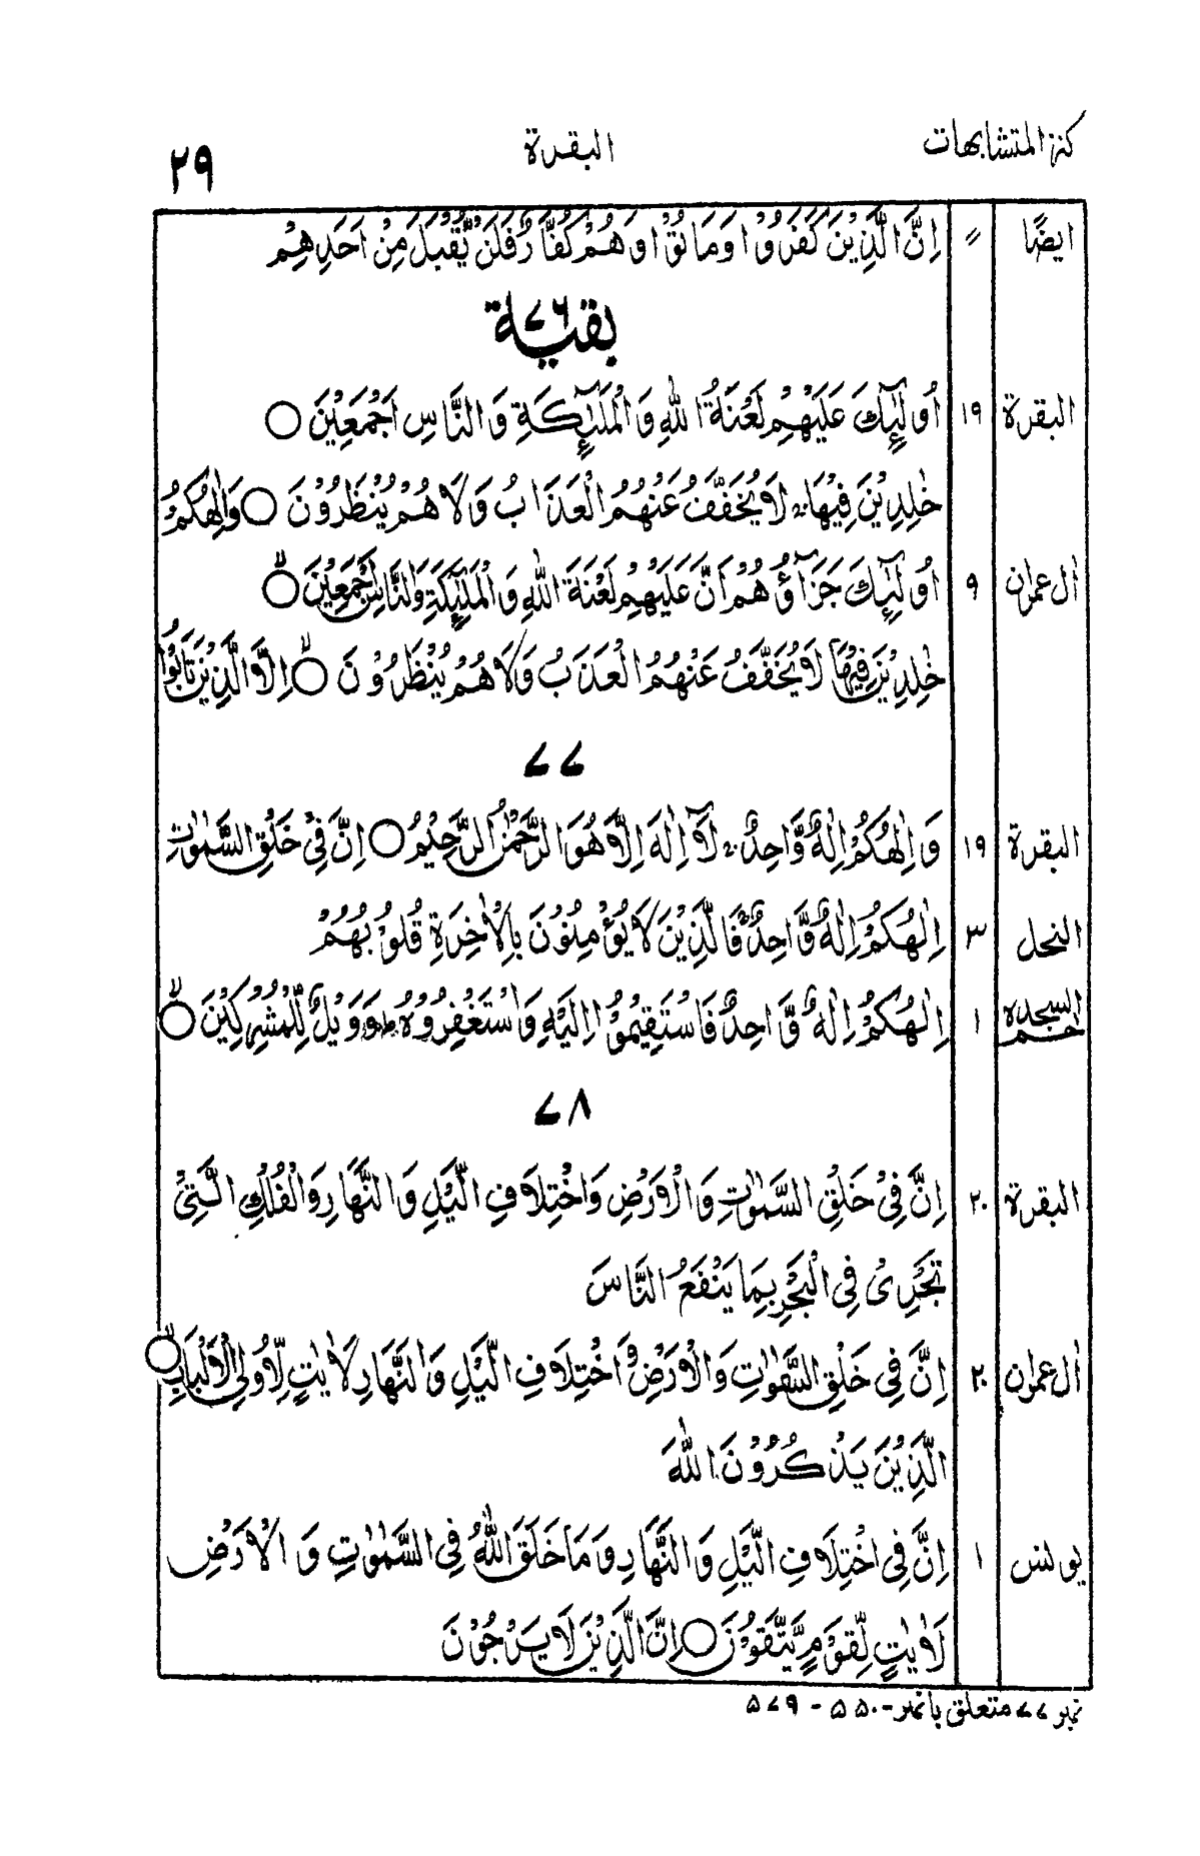 كنز المتشابهات البقرة ٢٩
ايضًا 〃 اِنَّ الَّذِيْنَ كَفَرُوْا وَمَاتُوْا وَهُمْ كُفَّارٌ فَلَنْ يُّقْبَلَ مِنْ اَحَدِهِمْ
بقية ۷۶
البقرة ١٩ اُولٰٓئِكَ عَلَيْهِمْ لَعْنَةُ اللّٰهِ وَالْمَلٰٓئِكَةِ وَالنَّاسِ اَجْمَعِيْنَ ○
خٰلِدِيْنَ فِيْهَا ۚ لَا يُخَفَّفُ عَنْهُمُ الْعَذَابُ وَلَا هُمْ يُنْظَرُوْنَ ○ وَاِلٰهُكُمْ
اٰل عمران ٩ اُولٰٓئِكَ جَزَآؤُهُمْ اَنَّ عَلَيْهِمْ لَعْنَةَ اللّٰهِ وَالْمَلٰٓئِكَةِ وَالنَّاسِ اَجْمَعِيْنَ ○ۙ
خٰلِدِيْنَ فِيْهَا ۚ لَا يُخَفَّفُ عَنْهُمُ الْعَذَابُ وَلَا هُمْ يُنْظَرُوْنَ ○ۙ اِلَّا الَّذِيْنَ تَابُوْا
۷۷
البقرة ١٩ وَاِلٰهُكُمْ اِلٰهٌ وَّاحِدٌ ۚ لَآ اِلٰهَ اِلَّا هُوَ الرَّحْمٰنُ الرَّحِيْمُ ○ اِنَّ فِيْ خَلْقِ السَّمٰوٰتِ
النحل ٣ اِلٰهُكُمْ اِلٰهٌ وَّاحِدٌ ۚ فَالَّذِيْنَ لَا يُؤْمِنُوْنَ بِالْاٰخِرَةِ قُلُوْبُهُمْ
حٰم السجدہ ١ اِلٰهُكُمْ اِلٰهٌ وَّاحِدٌ فَاسْتَقِيْمُوْا اِلَيْهِ وَاسْتَغْفِرُوْهُ ط وَوَيْلٌ لِّلْمُشْرِكِيْنَ ○ۙ
۷۸
البقرة ٢٠ اِنَّ فِيْ خَلْقِ السَّمٰوٰتِ وَالْاَرْضِ وَاخْتِلَافِ الَّيْلِ وَالنَّهَارِ وَالْفُلْكِ الَّتِيْ
تَجْرِيْ فِي الْبَحْرِ بِمَا يَنْفَعُ النَّاسَ
اٰل عمران ٢٠ اِنَّ فِيْ خَلْقِ السَّمٰوٰتِ وَالْاَرْضِ وَاخْتِلَافِ الَّيْلِ وَالنَّهَارِ لَاٰيٰتٍ لِّاُولِي الْاَلْبَابِ ○ۙ
الَّذِيْنَ يَذْكُرُوْنَ اللّٰهَ
يونس ١ اِنَّ فِي اخْتِلَافِ الَّيْلِ وَالنَّهَارِ وَمَا خَلَقَ اللّٰهُ فِي السَّمٰوٰتِ وَالْاَرْضِ
لَاٰيٰتٍ لِّقَوْمٍ يَّتَّقُوْنَ ○ اِنَّ الَّذِيْنَ لَا يَرْجُوْنَ
نمبر ۷۷ متعلق با نمبر - ۵۵۰ - ۵۷۹